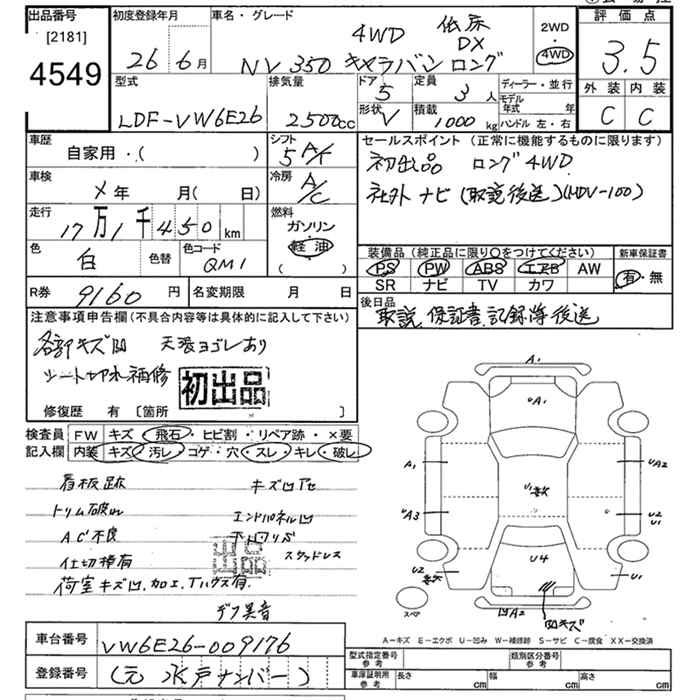 出品番号
[2181]
4549
初度登録年月
26年 6月
車名・グレード
4WD 低床 DX
NV350 キャラバン ロング
2WD
・
4WD
評価点
3.5
外装 内装
C C
型式
LDF-VW6E26
排気量
2500cc
ドア
5
形状
V
定員
3人
積載
1000kg
ディーラー・並行
モデル年式 年
ハンドル 左・右
車歴
自家用・( )
シフト
5 A/F
車検
メ年 月( 日)
冷房
A/C
走行
17万1千450km
燃料
ガソリン
軽油
( )
色
白
色替
色コード
QM1
R券
9160円
名変期限 月 日
セールスポイント(正常に機能するものに限ります)
初出品 ロング4WD
社外ナビ(取説後送)(HDV-100)
装備品(純正品に限り○をつけてください)
新車保証書
PS PW ABS エアB AW
SR ナビ TV カワ
有・無
後日品
取説 保証書 記録簿後送
注意事項申告欄(不具合内容等は具体的に記入して下さい)
各部キズ凹 天張ヨゴレあり
シート切れ補修
初出品
修復歴 有 [箇所 ]
検査員記入欄
FW キズ・飛石・ヒビ割・リペア跡・×要
内装 キズ・汚レ・コゲ・穴・スレ・キレ・破レ
看板跡 キズ凹
トリム破れ エンドパネル凹
AC不良 下回りサビ
仕切棒有 スタッドレス
出品
荷室キズ凹、加工、Tハウス有
デフ異音
A1
A1
A1
UA2
A3
U2
U1
U4
U2
U1
凹A2
凹キズ
スペア
A-キズ E-エクボ U-凹み W-補修跡 S-サビ C-腐食 XX-交換済
車台番号
VW6E26-009176
登録番号
(元 水戸ナンバー)
型式指定番号 参考
類別区分番号 参考
車庫証明用 参考
長さ cm
幅 cm
高さ cm